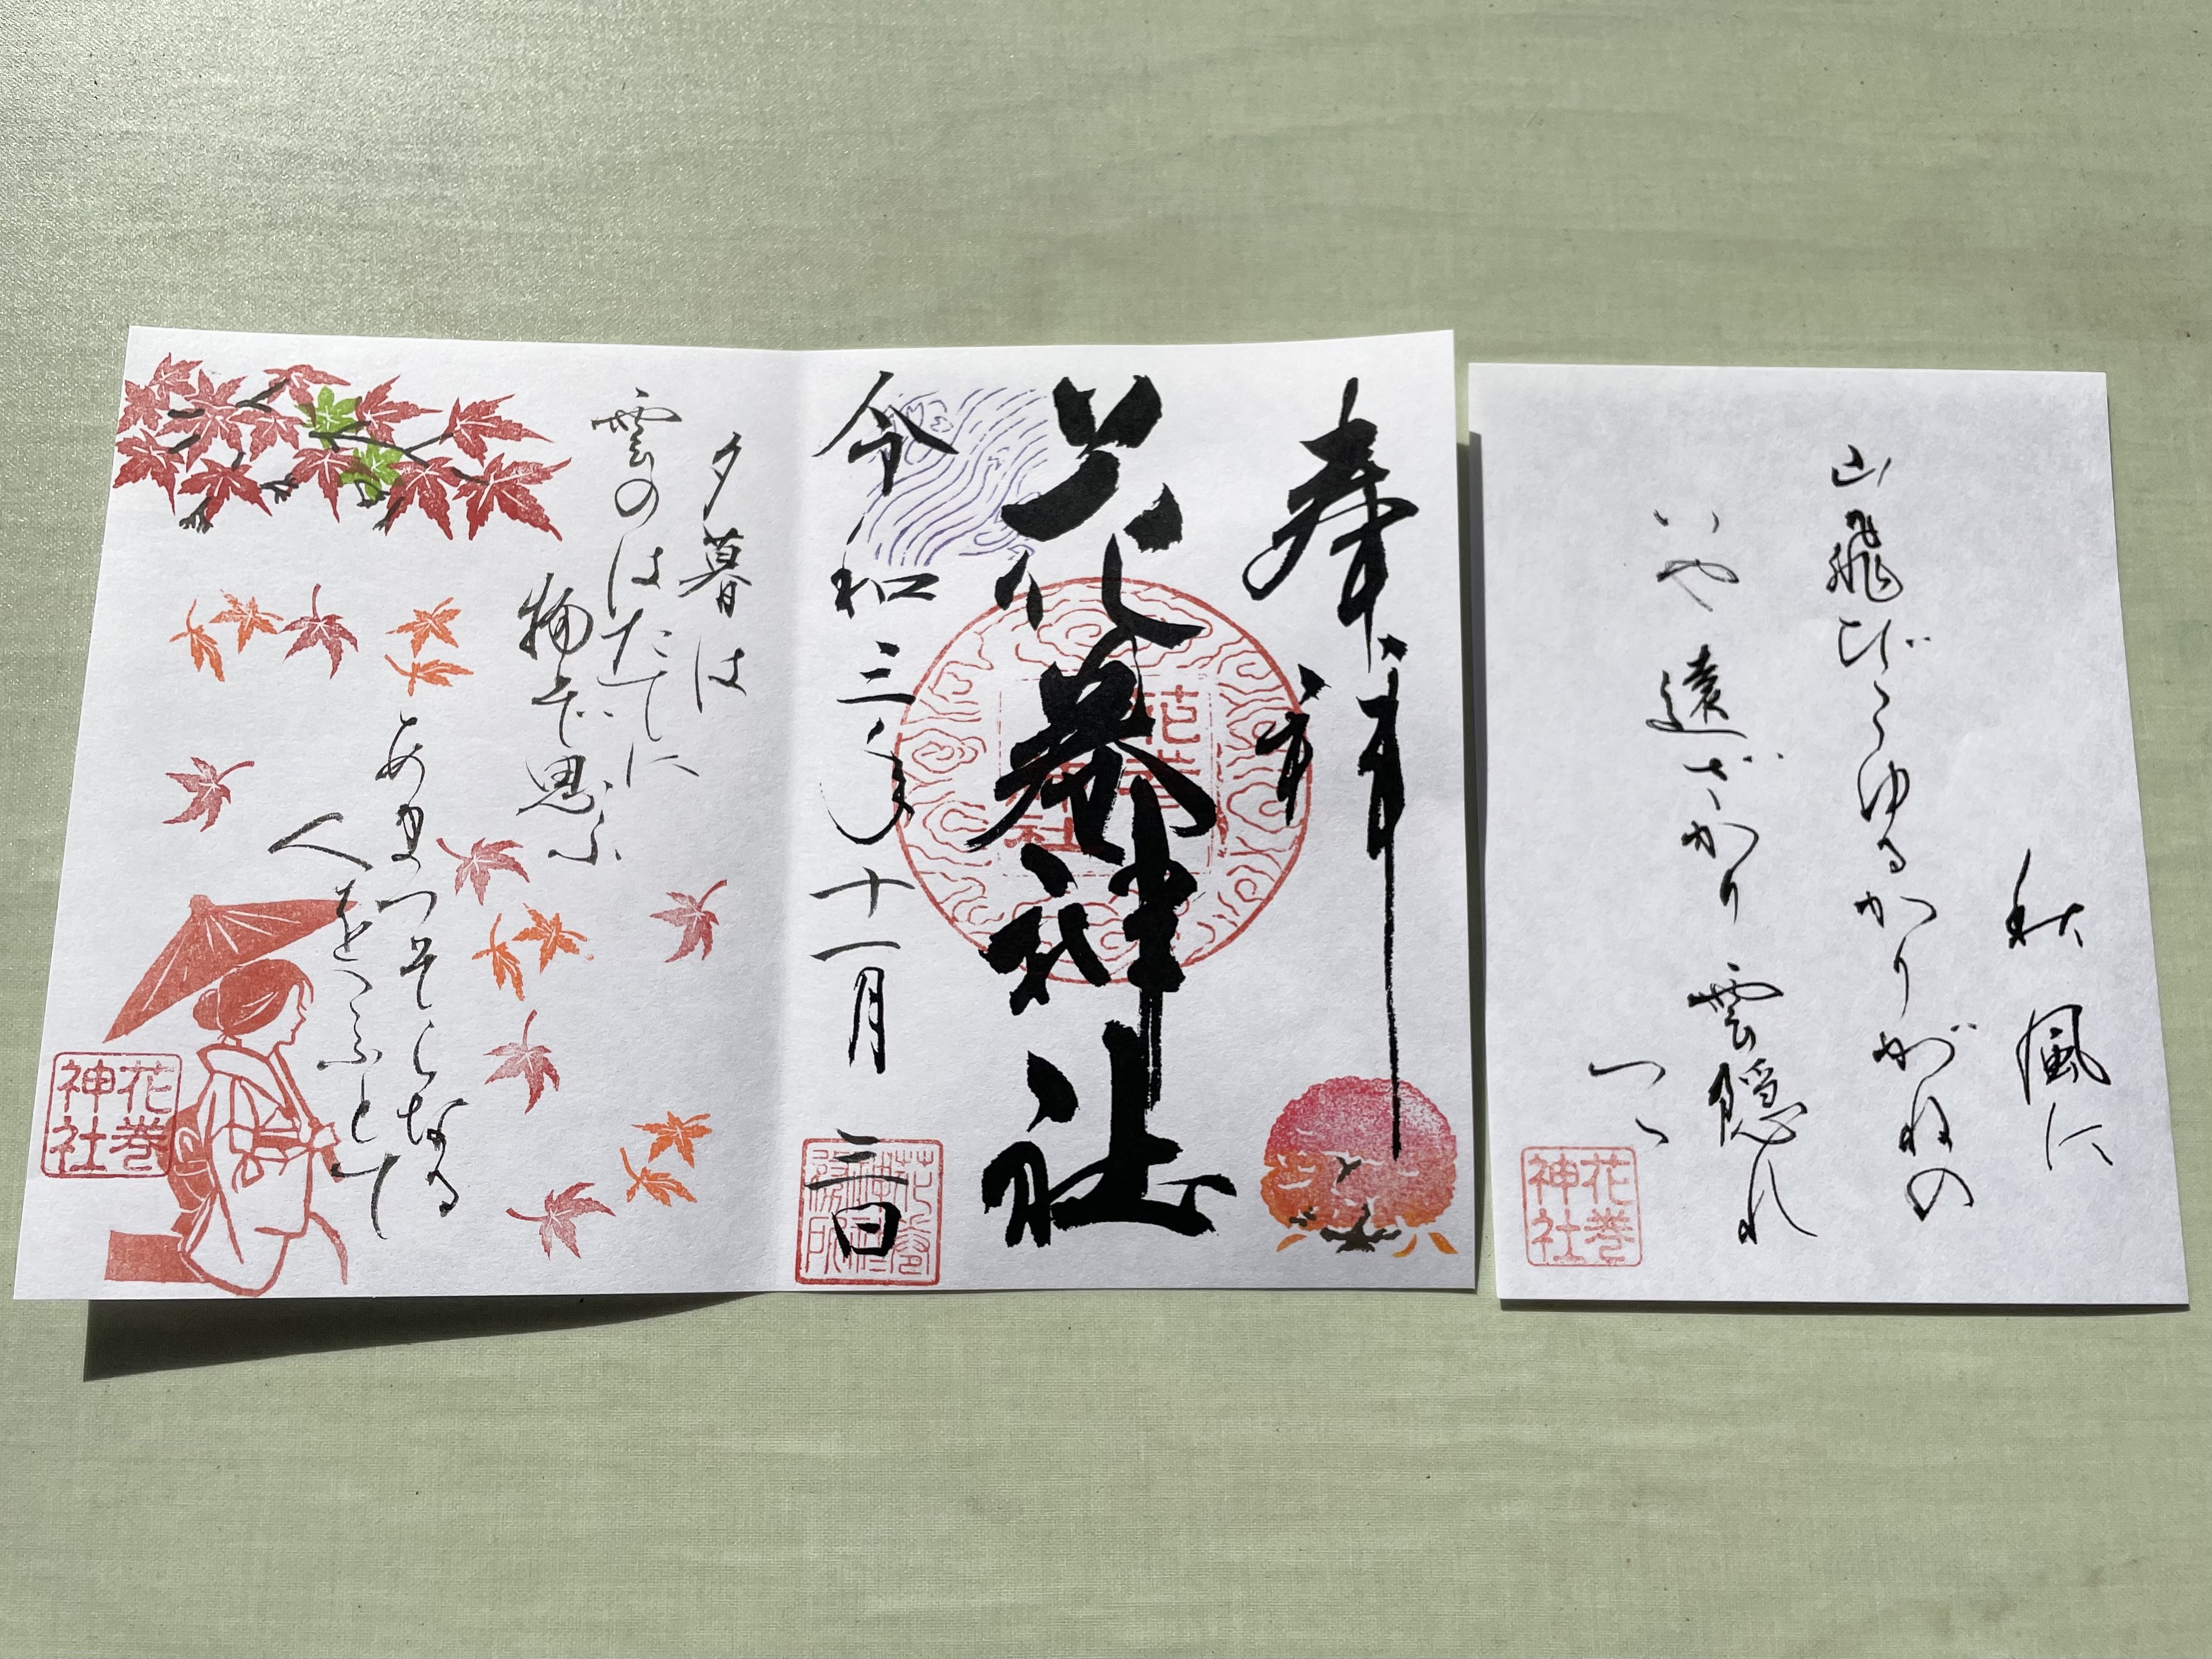 秋風に
山飛びこゆるかりがねの
いや遠ざかり雲隠れ
つゝ
花巻
神社
奉拝
花巻神社
花巻
神社
令和三年十一月二日
夕暮は
雲のはたてに
物ぞ思ふ
あまつそらなる
人をこふとて
花巻
神社